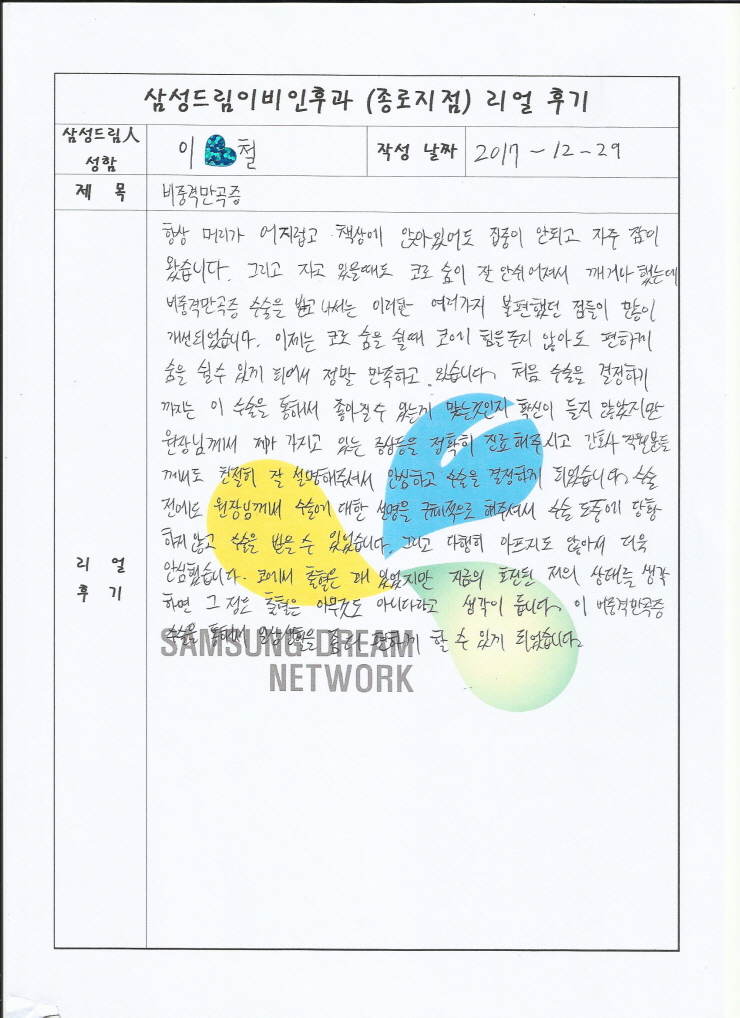 삼성드림이비인후과 (종로지점) 리얼 후기
삼성드림人
성함
이 철
작성 날짜
2017-12-29
제 목
비중격만곡증
리 얼
후 기
항상 머리가 어지럽고 책상에 앉아있어도 집중이 안되고 자주 잠이
왔습니다. 그리고 자고 있을때도 코로 숨이 잘 안쉬어져서 깨거나 했는데
비중격만곡증 수술을 받고 나서는 이러한 여러가지 불편했던 점들이 많이
개선되었습니다. 이제는 코로 숨을 쉴때 코에 힘을주지 않아도 편하게
숨을 쉴수 있게 되어서 정말 만족하고 있습니다. 처음 수술을 결정하기
까지는 이 수술을 통해서 좋아질수 있는게 맞는것인지 확신이 들지 않았지만
원장님께서 제가 가지고 있는 증상들을 정확히 진료해주시고 간호사 직원분들
께서도 친절히 잘 설명해주셔서 안심하고 수술을 결정하게 되었습니다. 수술
전에도 원장님께서 수술에 대한 설명을 구체적으로 해주셔서 수술 도중에 당황
하지않고 수술을 받을수 있었습니다. 그리고 다행히 아프지도 않아서 더욱
안심했습니다. 코에서 출혈은 꽤 있었지만 지금의 호전된 저의 상태를 생각
하면 그정도 출혈은 아무것도 아니다라고 생각이 듭니다. 이 비중격만곡증
수술을 통해서 일상생활을 편하게 할 수 있게 되었습니다.
SAMSUNG DREAM
NETWORK